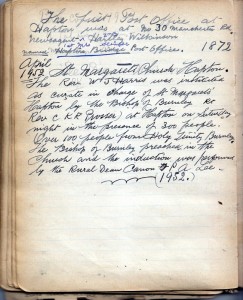 The first Post Office at
Hapton was at No 30 Manchester Rd
Newsagent Wilkinson
name Hapton Bridge Post Office. 1872
April
1952 St. Margarets Church Hapton.
The Rev W. J Harris was instituted
as curate in charge of St Margarets
Hapton by the Bishop of Burnley Rt
Rev C K R Prosser at Hapton on Saturday
night in the presence of 300 people.
Over 100 people from Holy Trinity Burnley.
The Bishop of Burnley preached in the
Church and the induction was performed
by the Rural Dean Canon A. Lee.
(1952.)